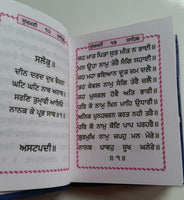 ਸੁਖਮਨੀ ੧੩ ਸਾਹਿਬ
ਸਲੋਕੁ ॥
ਦੀਨ ਦਰਦ ਦੁਖ ਭੰਜਨਾ
ਘਟਿ ਘਟਿ ਨਾਥ ਅਨਾਥ ॥
ਸਰਣਿ ਤੁਮ੍ਹਾਰੀ ਆਇਓ
ਨਾਨਕ ਕੇ ਪ੍ਰਭ ਸਾਥ ॥੧॥
ਅਸਟਪਦੀ ॥
ਸੁਖਮਨੀ ੧੩ ਸਾਹਿਬ
ਜਹ ਮਾਤ ਪਿਤਾ ਸੁਤ ਮੀਤ ਨ ਭਾਈ ॥
ਮਨ ਊਹਾ ਨਾਮੁ ਤੇਰੈ ਸੰਗਿ ਸਹਾਈ ॥
ਜਹ ਮਹਾ ਭਇਆਨ ਦੂਤ ਜਮ ਦਲੈ ॥
ਤਹ ਕੇਵਲ ਨਾਮੁ ਸੰਗਿ ਤੇਰੈ ਚਲੈ ॥
ਜਹ ਮੁਸਕਲ ਹੋਵੈ ਅਤਿ ਭਾਰੀ ॥
ਹਰਿ ਕੋ ਨਾਮੁ ਖਿਨ ਮਾਹਿ ਉਧਾਰੀ ॥
ਅਨਿਕ ਪੁਨਹਚਰਨ ਕਰਤ ਨਹੀ ਤਰੈ ॥
ਹਰਿ ਕੋ ਨਾਮੁ ਕੋਟਿ ਪਾਪ ਪਰਹਰੈ ॥
ਗੁਰਮੁਖਿ ਨਾਮੁ ਜਪਹੁ ਮਨ ਮੇਰੇ ॥
ਨਾਨਕ ਪਾਵਹੁ ਸੂਖ ਘਨੇਰੇ ॥
॥੧॥